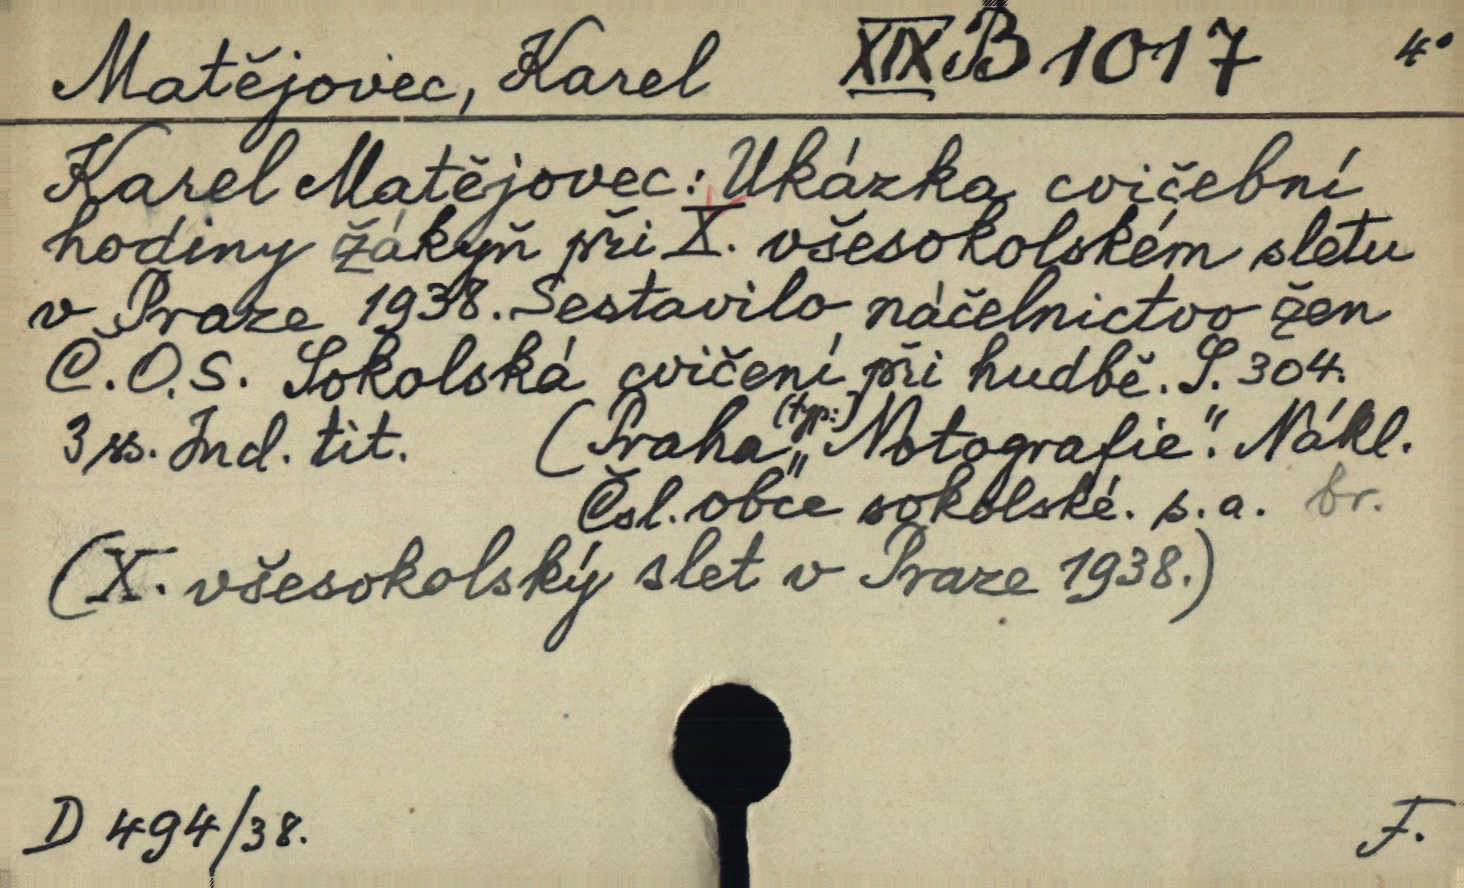 Matějovec, Karel XIX B 1017 4°
Karel Matějovec: Ukázka cvičební
hodiny žákyň při X. všesokolském sletu
v Praze 1938. Sestavilo náčelnictvo žen
Č.O.S. Sokolská cvičení při hudbě. S. 304.
3 ss. Ind. tit. (Praha, (typ:) „Notografie". Nákl.
Čsl. obce sokolské. s.a. br.
(X. všesokolský slet v Praze 1938.)
D 494/38. F.